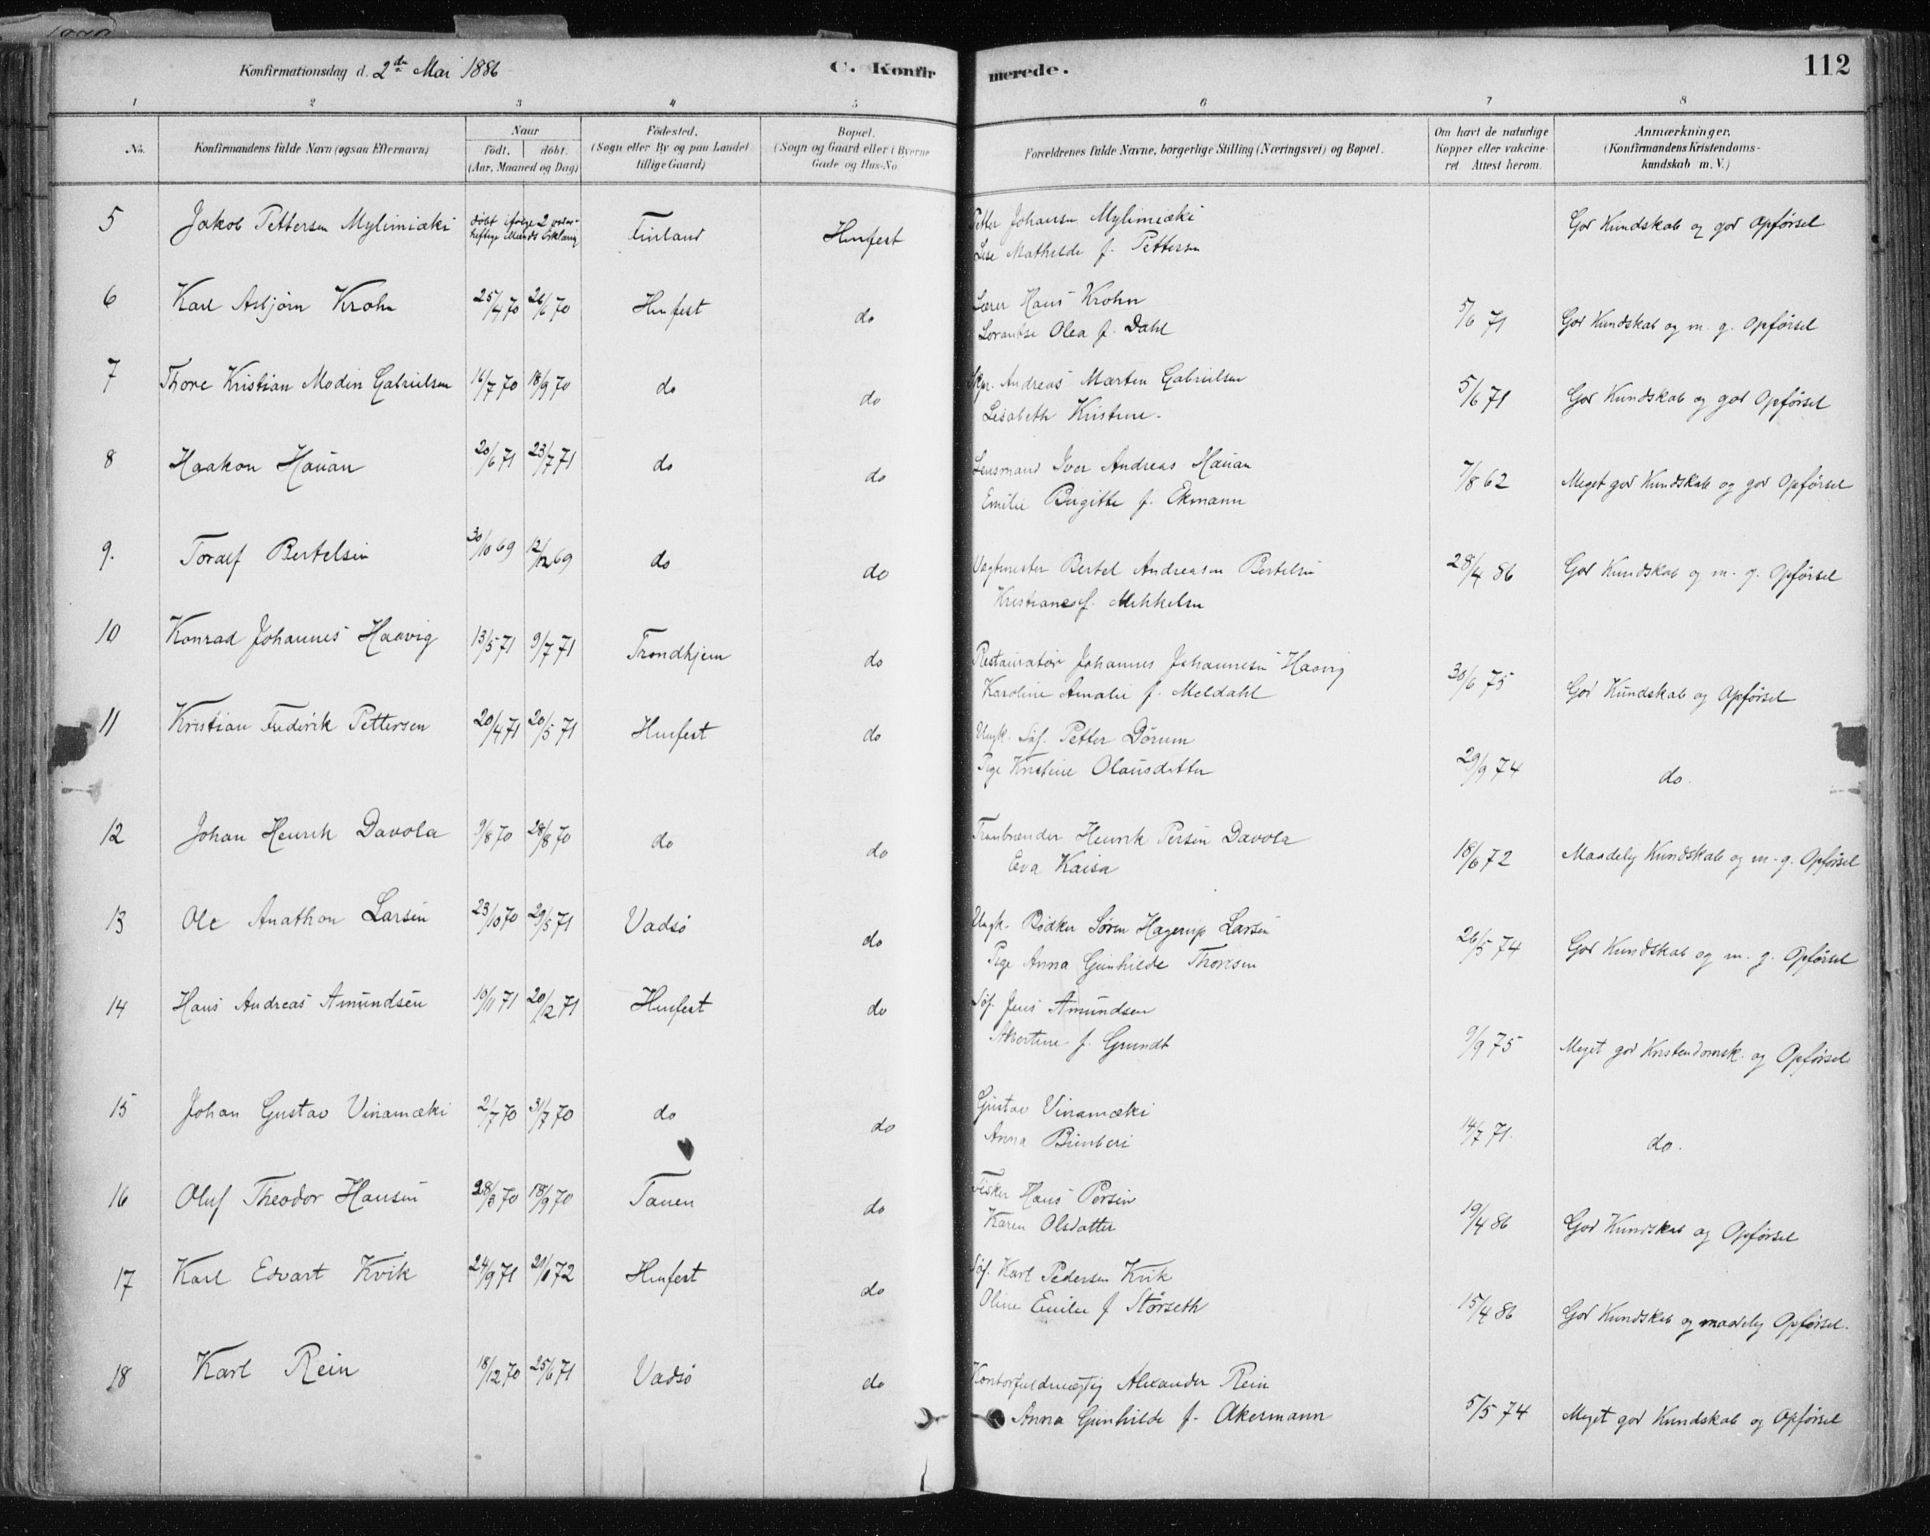 Konfirmationsdag d. 2den Mai 1886
C. Konfirmerede.
112
1 2 3 4 5 6 7 8
No.
Konfirmandens fulde Navn (ogsaa Efternavn)
Naar
födt. döbt.
(Aar, Maaned og Dag)
Födested.
(Sogn eller By og paa Landet
tillige Gaard)
Bopæl.
(Sogn og Gaard eller i Byerne
Gade og Hus-No.
Forældrenes fulde Navne, borgerlige Stilling (Næringsvei) og Bopæl.
Om havt de naturlige
Kopper eller vakcine-
ret. Attest herom.
Anmærkninger.
(Konfirmandens Kristendoms-
kundskab m. V.)
5 Jakob Pettersen Mylimiæki döbt ifølge 2 Finland Hmfest Petter Johansen Mylimiæki God Kundskab og god Opførsel
Lise Mathilde f. Pettersen
6 Karl Asbjørn Krohn 25/4 70 26/6 70 Hmfest do Lærer Hans Krohn 5/6 71 God Kundskab og m. g. Opførsel
Lorentse Olea f. Dahl
7 Thore Kristian Modin Gabrielsen 16/7 70 18/9 70 do do Skpr. Andreas Marten Gabrielsen 5/6 71 God Kundskab og god Opførsel
Lisabeth Kristine.
8 Haakon Hauan 20/6 71 23/7 71 do do Lensmand Iver Andreas Hauan 7/8 62 Meget god Kundskab og god Opførsel
Emilie Birgitte f. Ekmann
9. Toralf Bertelsen 30/10 69 12/12 69 do do Vagtmester Bertel Andreasen Bertelsen 28/4 86 God Kundskab og m. g. Opførsel
Kristiane f. Mikkelsen
10 Konrad Johannes Haavig 13/5 71 9/7 71 Trondhjem do Restauratør Johannes Johannesen Haavig 30/6 75 God Kundskab og Opførsel
Karoline Amalie f. Meldahl
11 Kristian Fredrik Pettersen 20/4 71 20/5 71 Hmfest do Ungk. Søf. Petter Dørum 29/9 74 do.
Pige Kristine Olausdatter
12 Johan Henrik Davola 9/8 70 28/8 70 do do Tranbrænder Henrik Persen Davola 18/6 72 Maadelig Kundskab og m. g. Opførsel
Eva Kaisa
13 Ole Anathon Larsen 23/10 70 29/5 71 Vadsø do Ungk. Bødker Søren Hagerup Larsen 26/5 74 God Kundskab og m. g. Opførsel
Pige Anna Gunhilde Thoresen
14 Hans Andreas Amundsen 10/11 71 20/12 71 Hmfest do Søf. Jens Amundsen 9/9 75 Meget god Kristendomsk. og Opførsel
Albertine f. Grundt
15 Johan Gustav Vinamæki 2/7 70 31/7 70 do do Gustav Vinamæki 14/7 71. do.
Anna
16 Oluf Theodor Hansen 28/3 70 18/9 70 Tanen do Fisker Hans Persen 19/4 86 God Kundskab og Opførsel
Karen Olsdatter
17 Karl Edvart Kvik 24/9 71 72 Hmfest do Søf. Karl Pedersen Kvik 15/4 86 God Kundskab og maadelig Opførsel.
Oline Emilie f Störseth
18 Karl Rein 18/12 70 25/6 71 Vadsø do Kontorfuldmægtig Alexander Rein 5/5 74 Meget god Kundskab og Opførsel
Anna Gunhilde f. Akermann